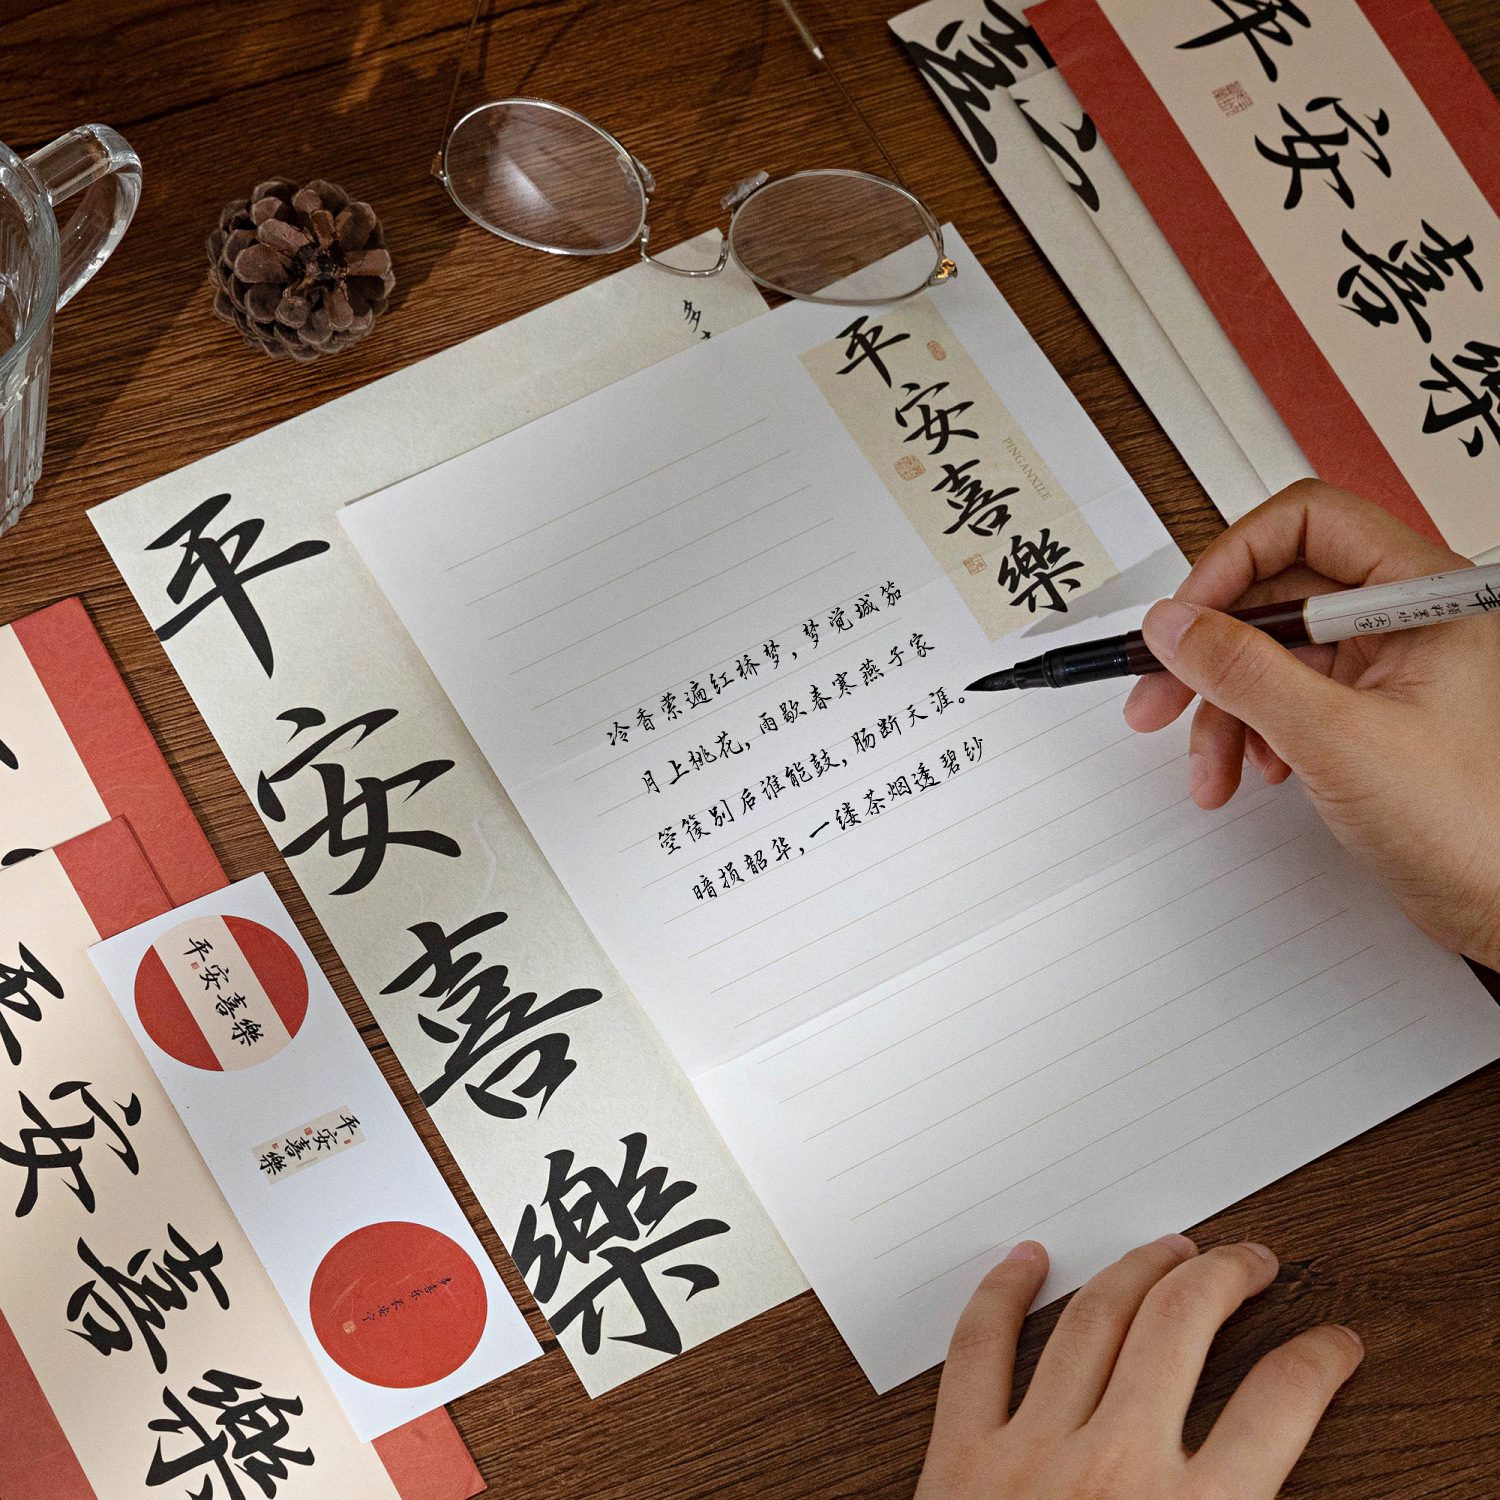 平安喜樂
多
平安喜樂
PINGANXILE
冷香萦遍红桥梦，梦觉城笳
月上桃花，雨歇春寒燕子家
箜篌别后谁能鼓，肠断天涯。
暗损韶华，一缕茶烟透碧纱
平安喜樂
平安喜樂
平安喜樂
平安喜樂
多喜乐长安宁